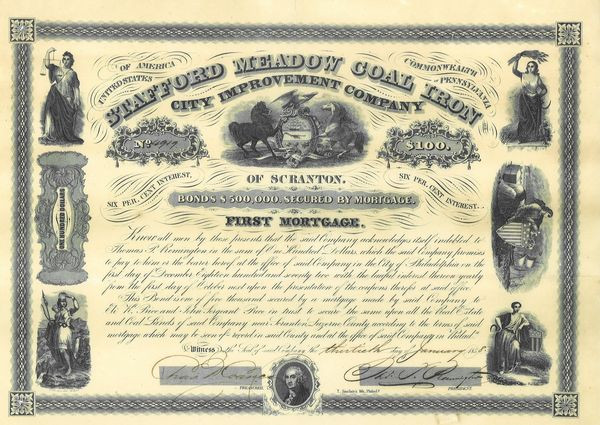 UNITED STATES
OF AMERICA
COMMONWEALTH
OF PENNSYLVANIA
STAFFORD MEADOW COAL IRON
CITY IMPROVEMENT COMPANY
No. 
$100.
OF SCRANTON.
SIX PER. CENT INTEREST,
SIX PER. CENT INTEREST.
BONDS $500,000. SECURED BY MORTGAGE.
FIRST MORTGAGE.
ONE HUNDRED DOLLARS
Know all men by these presents that the said Company acknowledges itself indebted to
Thomas P. in the sum of One Hundred Dollars, which the said Company promises
to pay to him or the bearer hereof at the office of said Company in the City of Philadelphia on the
first day of December Eighteen hundred and seventy two with the lawful interest thereon yearly
from the first day of October next upon the presentation of the coupons thereto at said office.
This Bond is one of five thousand secured by a mortgage made by said Company to
Eli K. Price and John Sergeant Price in trust to secure the same upon all the Real Estate
and Coal Lands of said Company near Scranton, Luzerne County according to the terms of said
mortgage which may be seen of record in said County and at the office of said Company in Philad.
Witness the Seal of said Company the thirtieth day of January 1858
TREASURER.
T. Sinclair's lith, Philad.
PRESIDENT.